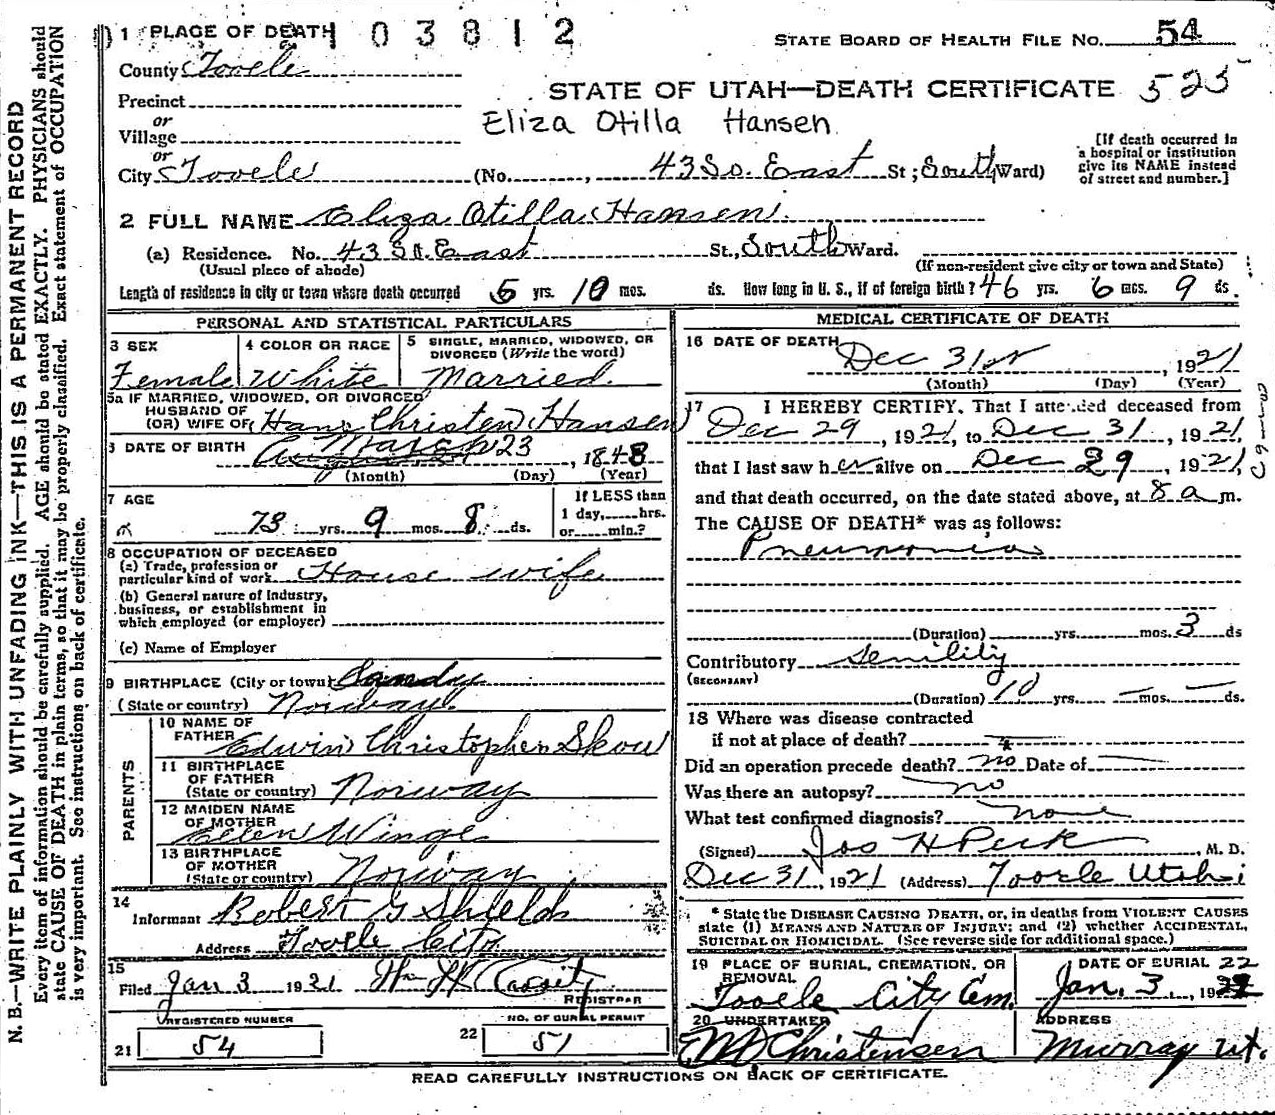 1 PLACE OF DEATH 1 0 3 8 1 2
STATE BOARD OF HEALTH FILE NO. 54
County Tooele
STATE OF UTAH—DEATH CERTIFICATE 525
Precinct
or
Village
Eliza Otilla Hansen
or
City Tooele (No. , 43 So. East St; South Ward)
[If death occurred in
a hospital or institution
give its NAME instead
of street and number.]
2 FULL NAME Eliza Otilla Hansen.
(a) Residence. No. 43 So. East St., South Ward.
(Usual place of abode) (If non-resident give city or town and State)
Length of residence in city or town where death occurred 5 yrs. 10 mos. ds. How long in U. S., if of foreign birth? 46 yrs. 6 mos. 9 ds.
PERSONAL AND STATISTICAL PARTICULARS
3 SEX
Female
4 COLOR OR RACE
White
5 SINGLE, MARRIED, WIDOWED, OR
DIVORCED (Write the word)
Married.
5a IF MARRIED, WIDOWED, OR DIVORCED
HUSBAND OF
(OR) WIFE OF Hans Christen Hansen
6 DATE OF BIRTH March 23, 1848
(Month) (Day) (Year)
7 AGE
73 yrs. 9 mos. 8 ds.
If LESS than
1 day, hrs.
or min.?
8 OCCUPATION OF DECEASED
(a) Trade, profession or
particular kind of work House wife
(b) General nature of Industry,
business, or establishment in
which employed (or employer)
(c) Name of Employer
9 BIRTHPLACE (City or town)
(State or country) Norway.
PARENTS
10 NAME OF
FATHER Edwin Christophen Skow
11 BIRTHPLACE
OF FATHER
(State or country) Norway
12 MAIDEN NAME
OF MOTHER
Ellen Winge
13 BIRTHPLACE
OF MOTHER
(State or country) Norway
14
Informant Robert G Shields
Address Tooele City
15
Filed Jan 3 1921
REGISTRAR
REGISTERED NUMBER
21 54
NO. OF BURIAL PERMIT
22 51
MEDICAL CERTIFICATE OF DEATH
16 DATE OF DEATH
Dec 31st, 1921
(Month) (Day) (Year)
17 I HEREBY CERTIFY, That I attended deceased from
Dec 29, 1921, to Dec 31, 1921,
that I last saw her alive on Dec 29, 1921,
and that death occurred, on the date stated above, at 8 a m.
The CAUSE OF DEATH* was as follows:
Pneumonia
(Duration) yrs. mos. 3 ds
Contributory Senility
(SECONDARY)
(Duration) 10 yrs. — mos. — ds.
18 Where was disease contracted
if not at place of death?
Did an operation precede death? no Date of
Was there an autopsy? no
What test confirmed diagnosis? none
(Signed) Jos H Peck, M. D.
Dec 31, 1921 (Address) Tooele Utah
* State the DISEASE CAUSING DEATH, or, in deaths from VIOLENT CAUSES
state (1) MEANS AND NATURE OF INJURY; and (2) whether ACCIDENTAL,
SUICIDAL OR HOMICIDAL. (See reverse side for additional space.)
19 PLACE OF BURIAL, CREMATION, OR
REMOVAL
Tooele City Cem.
DATE OF BURIAL 22
Jan. 3, 1922
20 UNDERTAKER
Christensen
ADDRESS
Murray Ut.
READ CAREFULLY INSTRUCTIONS ON BACK OF CERTIFICATE.
N. B.—WRITE PLAINLY WITH UNFADING INK—THIS IS A PERMANENT RECORD
Every item of information should be carefully supplied. AGE should be stated EXACTLY. PHYSICIANS should
state CAUSE OF DEATH in plain terms, so that it may be properly classified. Exact statement of OCCUPATION
is very important. See instructions on back of certificate.